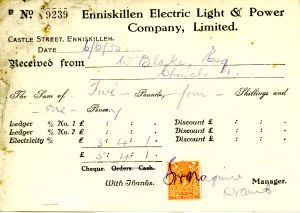 No 9239 Enniskillen Electric Light & Power
Company, Limited.
CASTLE STREET, ENNISKILLEN.
DATE 6/6/32
Received from W Blake, Esq
Church St.
The Sum of Five Pounds, four Shillings and
one Penny
Ledger % No. 1 £ : : Discount £ : :
Ledger % No. 2 £ : : Discount £ : :
Electricity % £ 5 : 4 : 1 Discount £ : :
£ 5 : 4 : 1
Cheque. Orders. Cash.
With Thanks. Manager.